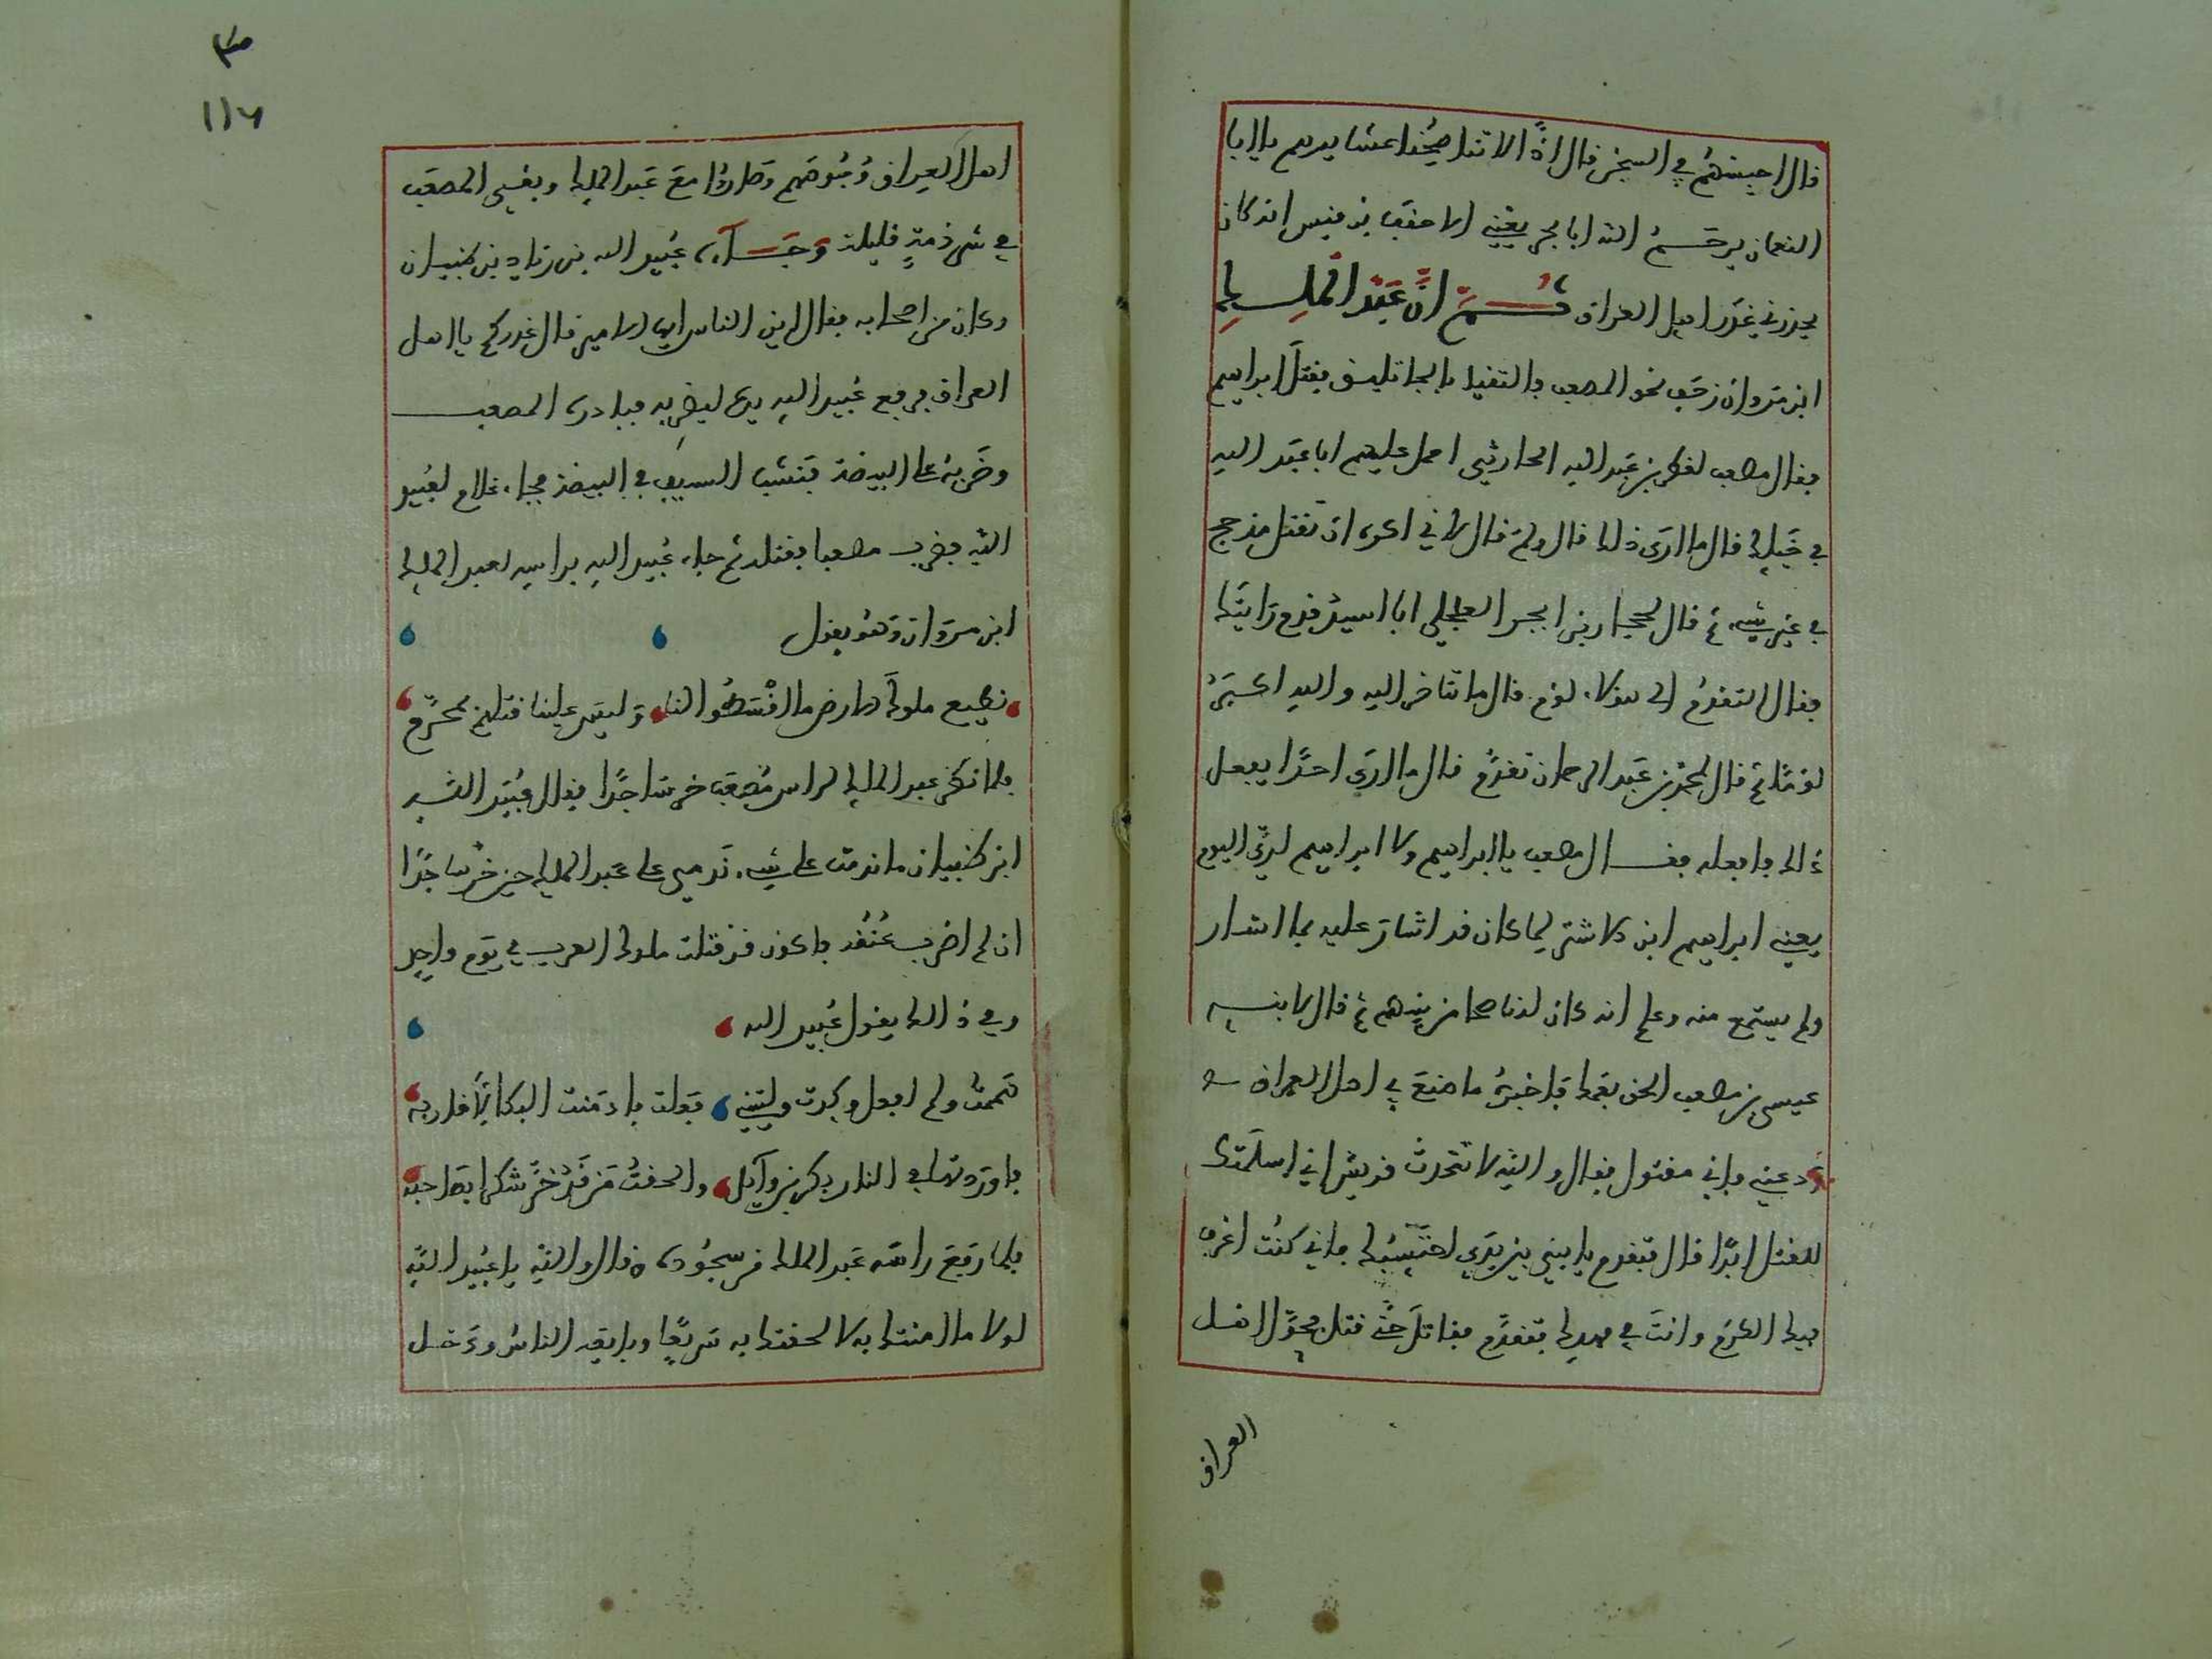 قال احبسهم في السجن قال اذًا لا تناصحنا عشايرهم يا ابا
النعمان يرحم الله ابا بحر يعني الاحنف بن قيس انه كان
يحذرني غدر اهل العراق ثُمَّ انّ عَبْد الْملِـــكِ
ابن مَروان زحَف نحو المصعب والتقيا بالجاثليق فقتل ابراهيم
فقال مصعب لقطن بن عَبد الله الحارثي احمل عليهم ابا عبَد الله
في خَيلِك قال ما ارَى ذلك قال ولمَ قال لاني اكره ان تقتل مذحج
في غير شيء ثم قال لحجار بن ابجر العجلي ابا اسيد قدم رَايتَك
فقال اتقدم الى هؤلاء لؤم قال ما تتاخر اليه والله اكبَرُ
لؤمًا ثم قال لمحمد بن عَبد الرحمان تقدّم قال ما ارَى احدًا يفعل
ذَالك فافعله فقــال مصعب يا ابراهيم ولا ابراهيم لِيَ اليوم
يعني ابراهيم ابن الاشتر لما كان قد اشار عليه بما اشار
ولم يستمع منه وعلم انه كان لنا صحا من بينهم ثم قال لابنه
عيسى بن مصعب الحق بعمك فاخبره ما صنعَ بي اهل العراق
ودعني فاني مقتول فقال والله لا تتحدث قريش اني اسلمتك
للقتل ابدًا قال فتقدم يا بني بين يدَي احتسبك فاني كنت اعرف
فيك الكرَم وانتَ في مهدِك فتقدَّم فقاتل حتَّى قتل فجوّل اهــل
العراق
١١٦
اهل العراق وُجُوهَهم وَصَاروا معَ عَبد الملك وبقي المصعَب
في شرذمَةٍ قليلة وَجَـــآءَ عُبيد الله بن زيادِ بن ظبيان
وكان من اصحابه فقال اين الناس ايها الامير قال غدركم يا اهل
العراق فرفع عُبيد الله يده ليضربه فبادره المصعب
وضَربهُ على البيضة فنشب السيف في البيضة فجاء غلام لعُبيد
الله فضرب مصعبا فقتله ثم جاء عُبيد الله براسِه لعبد الملك
ابن مروَان وَهُو يقول
نطيع ملوك الارض ما اقْسَطُوا لنا وَليسَ علينا قتلهم بمحرَّم
فلما نظر عبد الملك لراس مُصعَب خر ساجدًا فقال عُبَيْد الله
ابن ظبيان ما ندمت على شيء ندمي على عَبد الملك حين خر ساجدًا
ان لم اضرب عُنُقه فاكون قد قتلت ملوك العرب في يَوم واحِدٍ
وفي ذَالك يقول عُبيد الله
هَممتُ ولم افعل وكدت وليتني فعَلت فادمَنت البكا لاقاربه
فاورَدتها في النار بكر بن وآئل والحقتُ مَن قَد خَرَّ شكرا بصَاحبه
فلما رَفعَ رَاسَه عَبد الملك من سجُوده قال والله يا عُبيد الله
لولا ما امنتك به لالحقتك به سَريعًا وبايَعه الناسُ ودَخــل